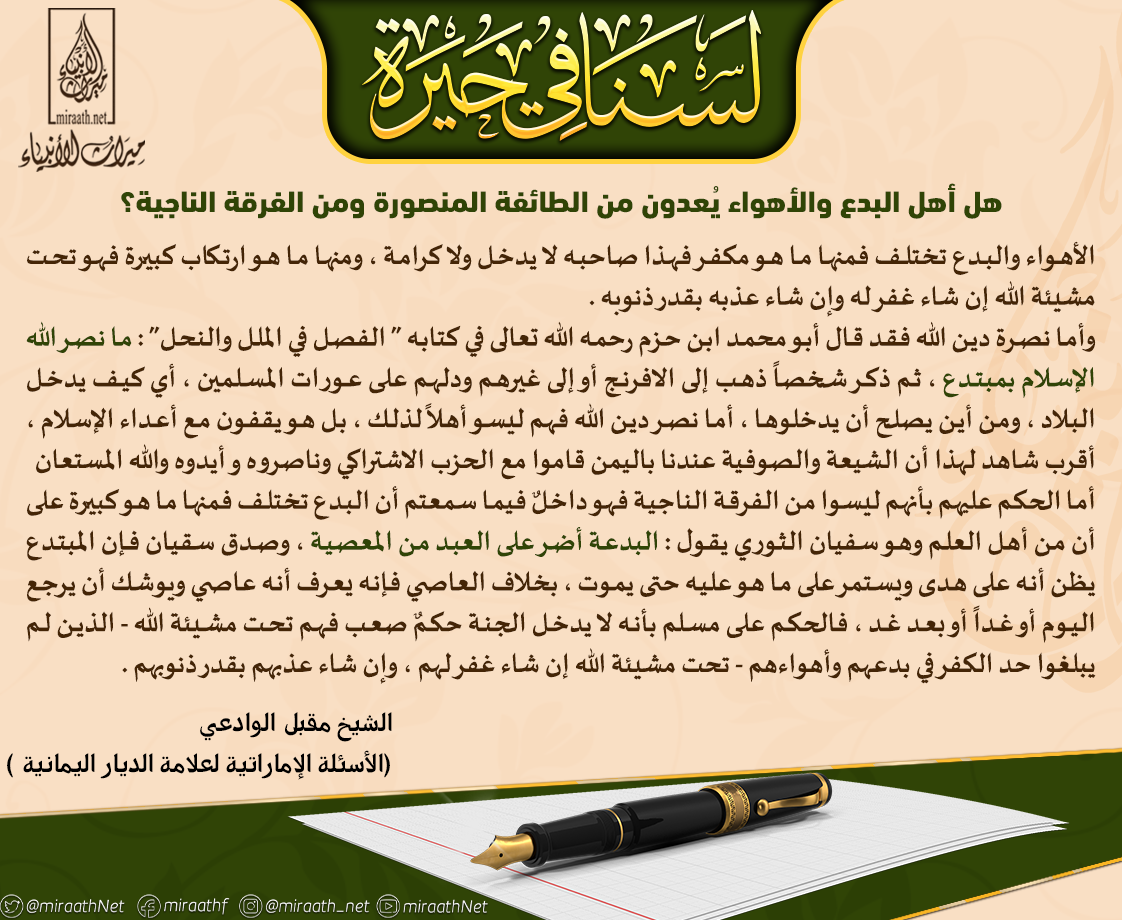 لَسْنَا فِي حَيْرَة
miraath.net
ميراث الأنبياء
هل أهل البدع والأهواء يُعدون من الطائفة المنصورة ومن الفرقة الناجية؟
الأهواء والبدع تختلف فمنها ما هو مكفر فهذا صاحبه لا يدخل ولا كرامة ، ومنها ما هو ارتكاب كبيرة فهو تحت
مشيئة الله إن شاء غفر له وإن شاء عذبه بقدر ذنوبه .
وأما نصرة دين الله فقد قال أبو محمد ابن حزم رحمه الله تعالى في كتابه " الفصل في الملل والنحل" : ما نصر الله
الإسلام بمبتدع ، ثم ذكر شخصاً ذهب إلى الافرنج أو إلى غيرهم ودلهم على عورات المسلمين ، أي كيف يدخل
البلاد ، ومن أين يصلح أن يدخلوها ، أما نصر دين الله فهم ليسو أهلاً لذلك ، بل هو يقفون مع أعداء الإسلام ،
أقرب شاهد لهذا أن الشيعة والصوفية عندنا باليمن قاموا مع الحزب الاشتراكي وناصروه و أيدوه والله المستعان
أما الحكم عليهم بأنهم ليسوا من الفرقة الناجية فهو داخلٌ فيما سمعتم أن البدع تختلف فمنها ما هو كبيرة على
أن من أهل العلم وهو سفيان الثوري يقول : البدعة أضر على العبد من المعصية ، وصدق سقيان فإن المبتدع
يظن أنه على هدى ويستمر على ما هو عليه حتى يموت ، بخلاف العاصي فإنه يعرف أنه عاصي ويوشك أن يرجع
اليوم أو غداً أو بعد غد ، فالحكم على مسلم بأنه لا يدخل الجنة حكمٌ صعب فهم تحت مشيئة الله - الذين لم
يبلغوا حد الكفر في بدعهم وأهواءهم - تحت مشيئة الله إن شاء غفر لهم ، وإن شاء عذبهم بقدر ذنوبهم .
الشيخ مقبل الوادعي
(الأسئلة الإماراتية لعلامة الديار اليمانية )
@miraathNet miraathf @miraath_net miraathNet